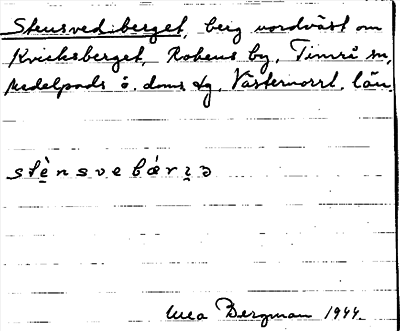 Stensvedsberget, berg nordväst om
Kvicksberget, Robens by, Timrå sn,
Medelpads ö. doms dg, Västernorrl. län.
stènsvebǽrɪə
Bergman 1944.